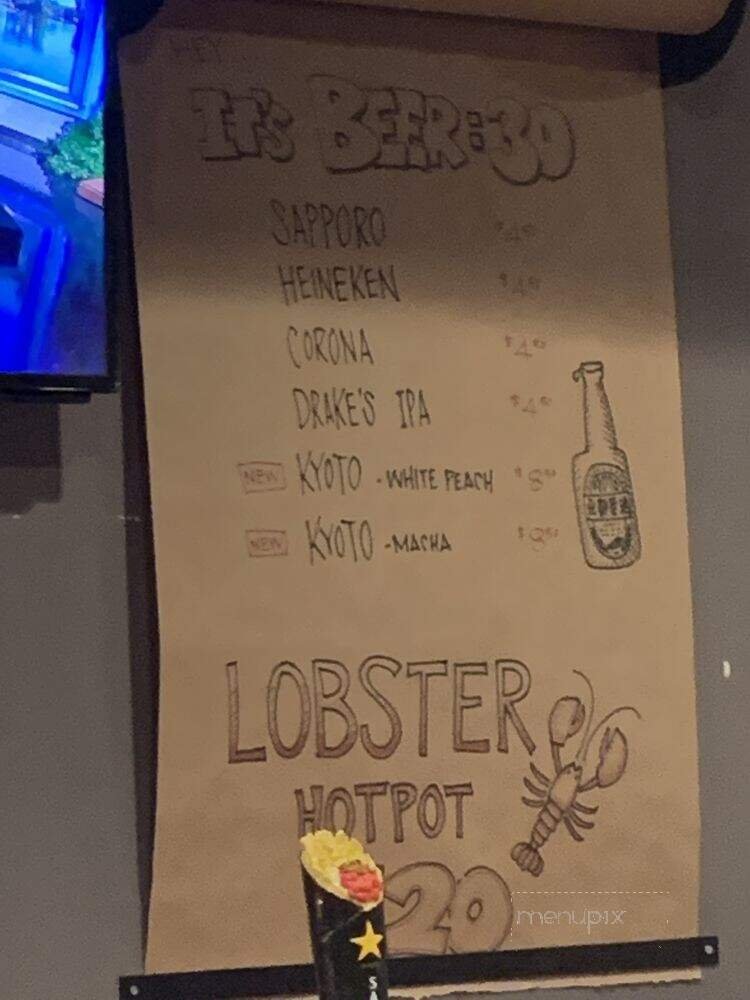 HEY
IT'S BEER:30
SAPPORO $4
HEINEKEN $4
CORONA $4
DRAKE'S IPA $4
NEW KYOTO - WHITE PEACH $8
NEW KYOTO - MACHA
LOBSTER
HOTPOT
20
menupix